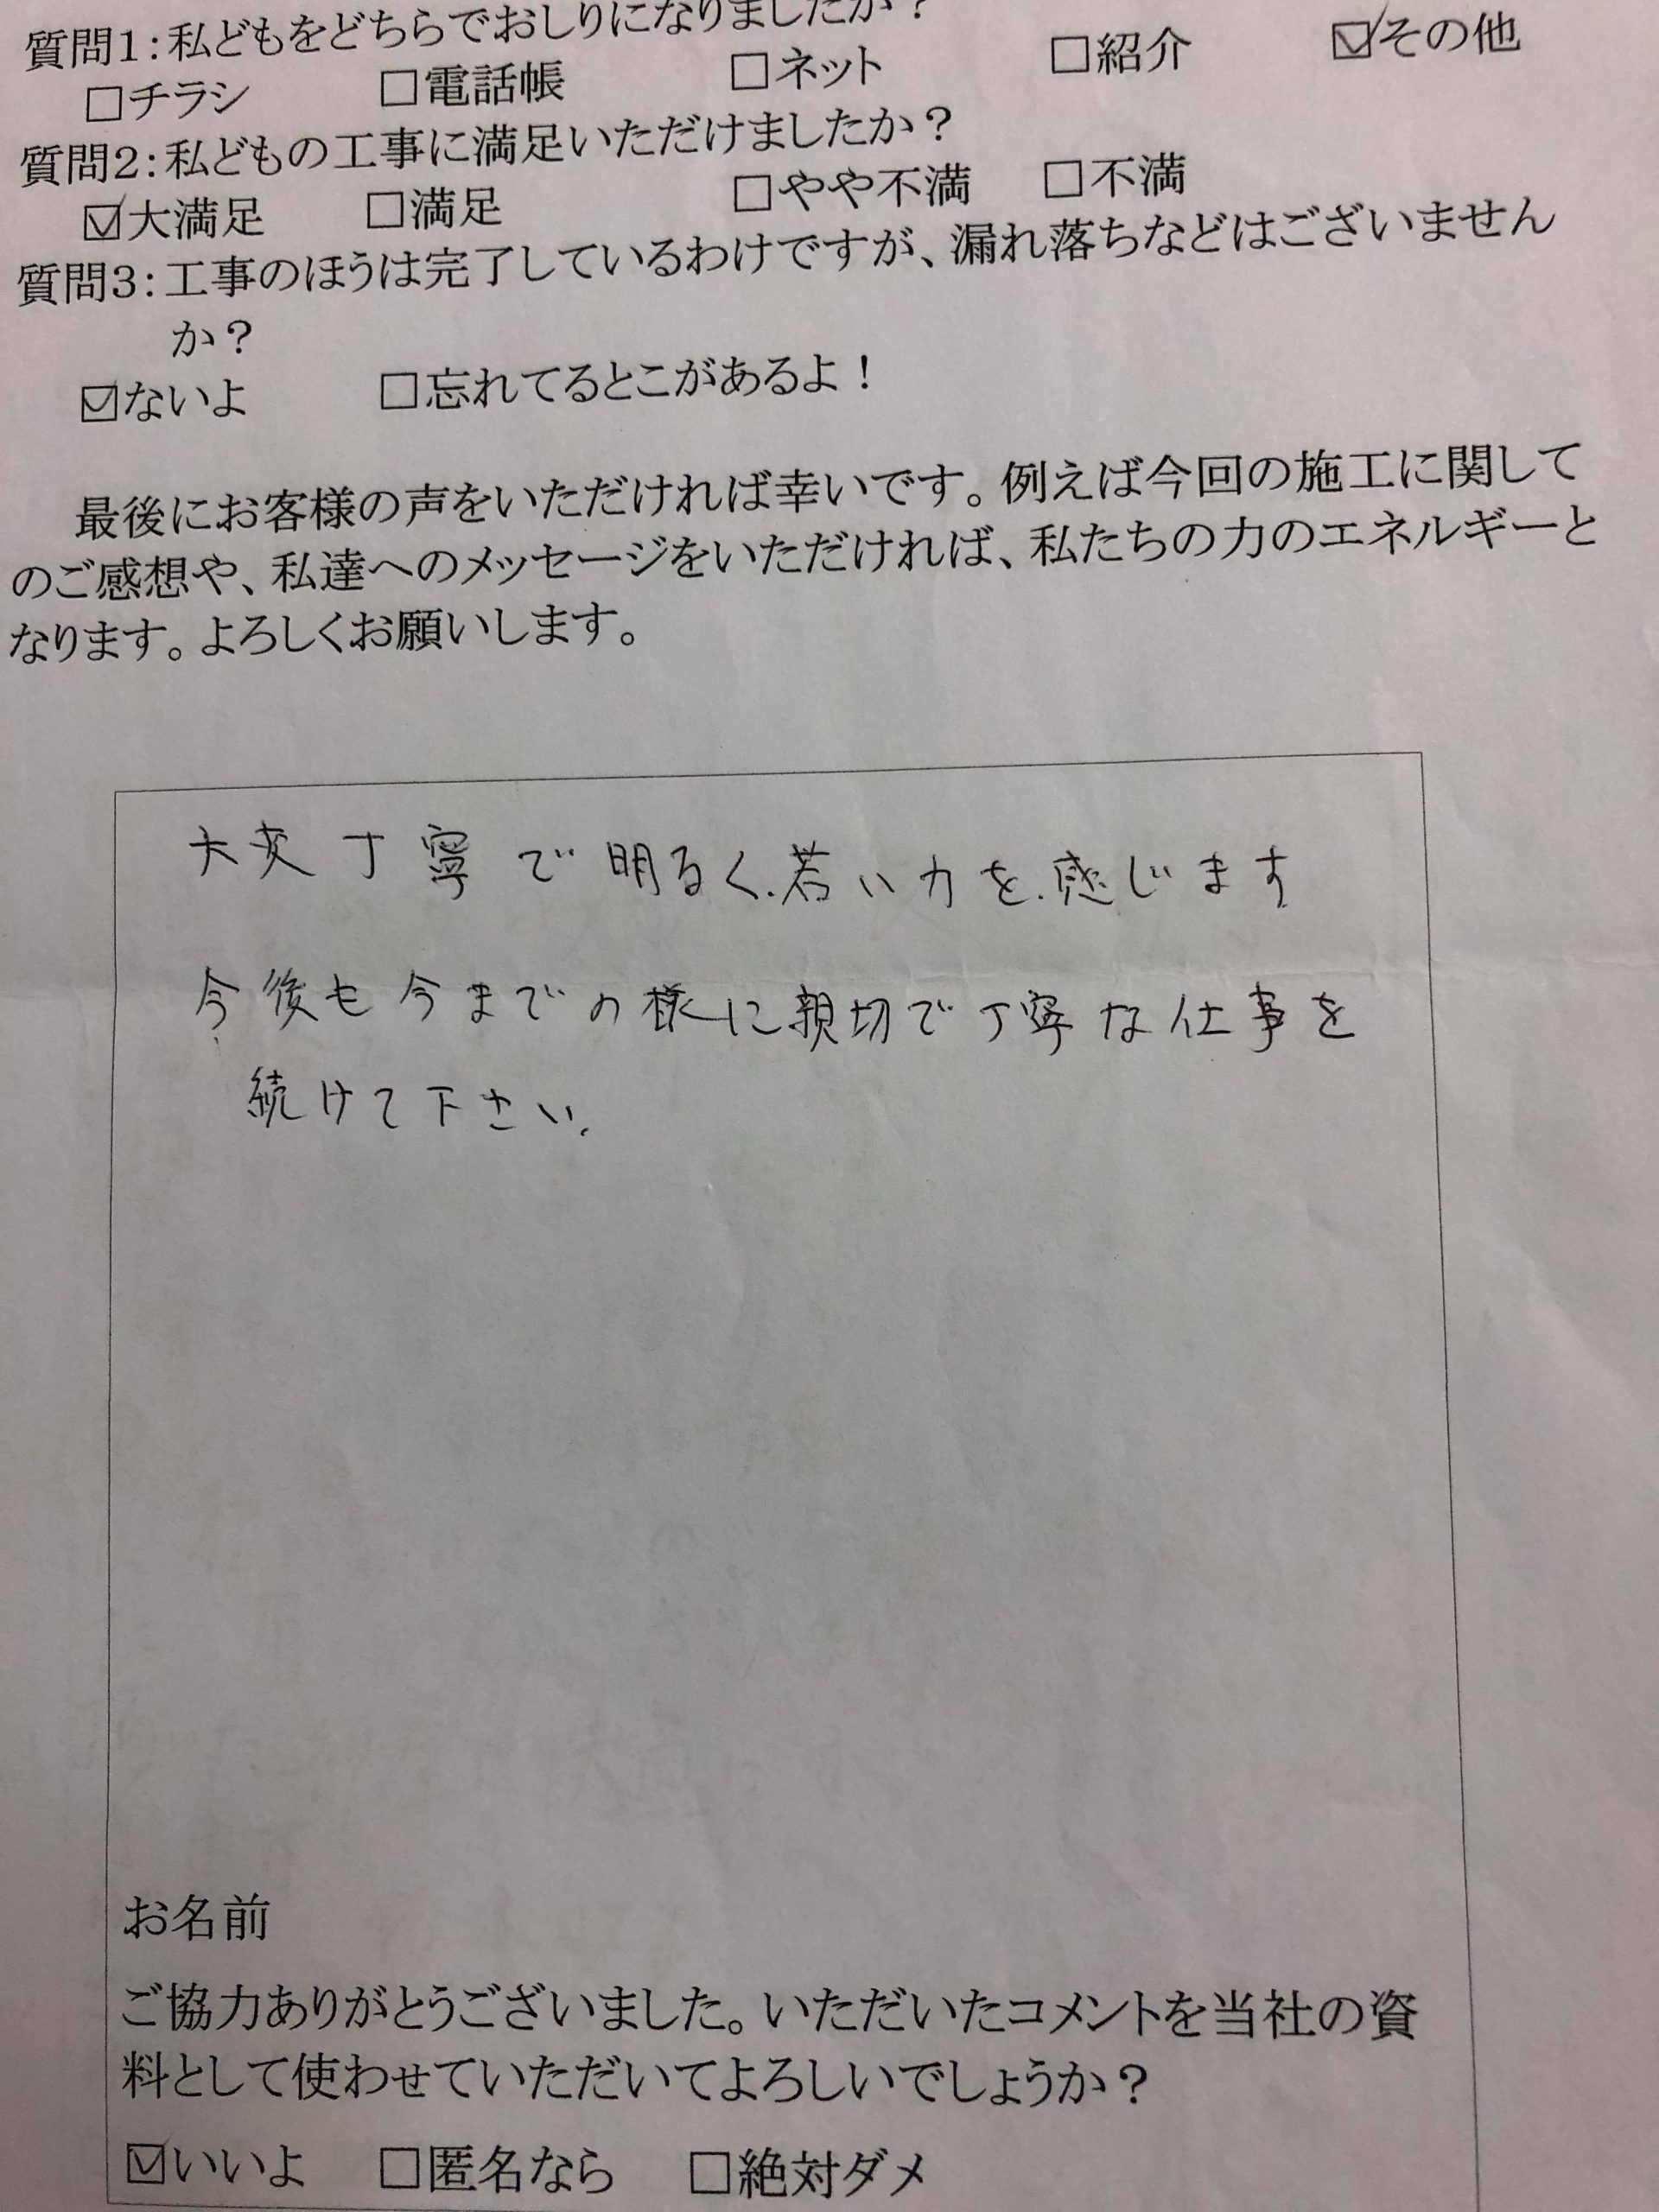 質問1:私どもをどちらでおしりになりましたか?
□チラシ □電話帳 □ネット □紹介 ☑その他
質問2:私どもの工事に満足いただけましたか?
☑大満足 □満足 □やや不満 □不満
質問3:工事のほうは完了しているわけですが、漏れ落ちなどはございません
か?
☑ないよ □忘れてるとこがあるよ!
最後にお客様の声をいただければ幸いです。例えば今回の施工に関して
のご感想や、私達へのメッセージをいただければ、私たちの力のエネルギーと
なります。よろしくお願いします。
大変丁寧で明るく、若い力を感じます
今後も今までの様に親切で丁寧な仕事を
続けて下さい。
お名前
ご協力ありがとうございました。いただいたコメントを当社の資
料として使わせていただいてよろしいでしょうか?
☑いいよ □匿名なら □絶対ダメ